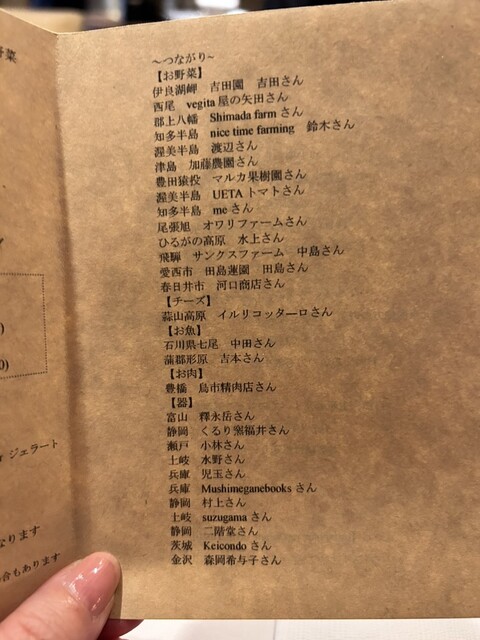 野菜
)
0)
ジェラート
なります
合もあります
～つながり～
【お野菜】
伊良湖岬 吉田園 吉田さん
西尾 vegita屋の矢田さん
郡上八幡 Shimada farmさん
知多半島 nice time farming 鈴木さん
渥美半島 渡辺さん
津島 加藤農園さん
豊田猿投 マルカ果樹園さん
渥美半島 UETAトマトさん
知多半島 meさん
尾張旭 オワリファームさん
ひるがの高原 水上さん
飛騨 サングスファーム 中島さん
愛西市 田島蓮園 田島さん
春日井市 河口商店さん
【チーズ】
蒜山高原 イルリコッターロさん
【お魚】
石川県七尾 中田さん
蒲郡形原 吉本さん
【お肉】
豊橋 鳥市精肉店さん
【器】
富山 釋永岳さん
静岡 くるり窯福井さん
瀬戸 小林さん
土岐 水野さん
兵庫 児玉さん
兵庫 Mushimeganebooksさん
静岡 村上さん
土岐 suzugamaさん
静岡 二階堂さん
茨城 Keicondoさん
金沢 森岡希与子さん